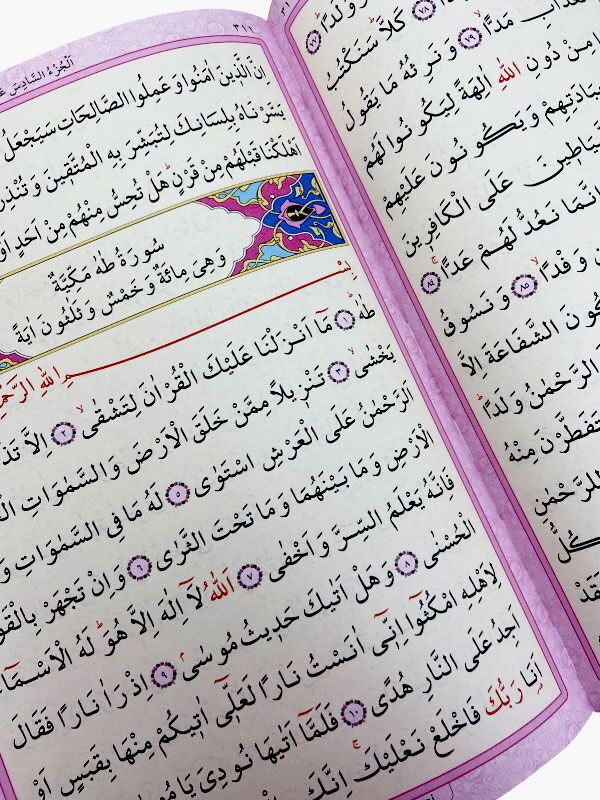 ٣١١
اَلْجُزْءُ السَّادِسَ
اِنَّ الَّذ۪ينَ اٰمَنُوا وَعَمِلُوا الصَّالِحَاتِ سَيَجْعَلُ
يَسَّرْنَاهُ بِلِسَانِكَ لِتُبَشِّرَ بِهِ الْمُتَّق۪ينَ وَتُنْذِرَ
اَهْلَكْنَا قَبْلَهُمْ مِنْ قَرْنٍۜ هَلْ تُحِسُّ مِنْهُمْ مِنْ اَحَدٍ اَوْ
سُورَةُ طٰهٰ مَكِّيَّةٌ
وَهِىَ مِائَةٌ وَخَمْسٌ وَثَلٰثُونَ اٰيَةً
بِسْمِ اللّٰهِ الرَّحْمٰنِ
طٰهٰۜ ﴿١﴾ مَٓا اَنْزَلْنَا عَلَيْكَ الْقُرْاٰنَ لِتَشْقٰىۙ ﴿٢﴾ اِلَّا
يَخْشٰىۙ ﴿٣﴾ تَنْز۪يلاً مِمَّنْ خَلَقَ الْاَرْضَ وَالسَّمٰوَاتِ
اَلرَّحْمٰنُ عَلَى الْعَرْشِ اسْتَوٰى ﴿٥﴾ لَهُ مَا فِى السَّمٰوَاتِ وَ
الْاَرْضِ وَمَا بَيْنَهُمَا وَمَا تَحْتَ الثَّرٰى ﴿٦﴾ وَاِنْ تَجْهَرْ بِالْقَوْلِ
فَاِنَّهُ يَعْلَمُ السِّرَّ وَاَخْفٰى ﴿٧﴾ اَللّٰهُ لَٓا اِلٰهَ اِلَّا هُوَۜ لَهُ الْاَسْمَٓاءُ
الْحُسْنٰى ﴿٨﴾ وَهَلْ اَتٰيكَ حَد۪يثُ مُوسٰىۢ ﴿٩﴾ اِذْ رَاٰ نَارًا فَقَالَ
لِاَهْلِهِ امْكُثُٓوا اِنّ۪ٓى اٰنَسْتُ نَارًا لَعَلّ۪ٓى اٰت۪يكُمْ مِنْهَا بِقَبَسٍ اَوْ
اَجِدُ عَلَى النَّارِ هُدًى ﴿١٠﴾ فَلَمَّٓا اَتٰيهَا نُودِىَ يَا مُوسٰى
اَنَا۬ رَبُّكَ فَاخْلَعْ نَعْلَيْكَۚ اِنَّكَ
وَلَدًاۜ ﴿٧٧﴾
﴿٧٨﴾ كَلَّاۜ سَنَكْتُبُ
الْعَذَابِ مَدًّاۙ ﴿٧٩﴾ وَنَرِثُهُ مَا يَقُولُ
مِنْ دُونِ اللّٰهِ اٰلِهَةً لِيَكُونُوا لَهُمْ
بِعِبَادَتِهِمْ وَيَكُونُونَ عَلَيْهِمْ
الشَّيَاط۪ينَ عَلَى الْكَافِر۪ينَ
اِنَّمَا نَعُدُّ لَهُمْ عَدًّاۚ ﴿٨٤﴾
وَفْدًاۙ ﴿٨٥﴾ وَنَسُوقُ
يَمْلِكُونَ الشَّفَاعَةَ اِلَّا
الرَّحْمٰنُ وَلَدًاۜ
يَتَفَطَّرْنَ مِنْهُ
لِلرَّحْمٰنِ
كُلُّ
لَقَدْ